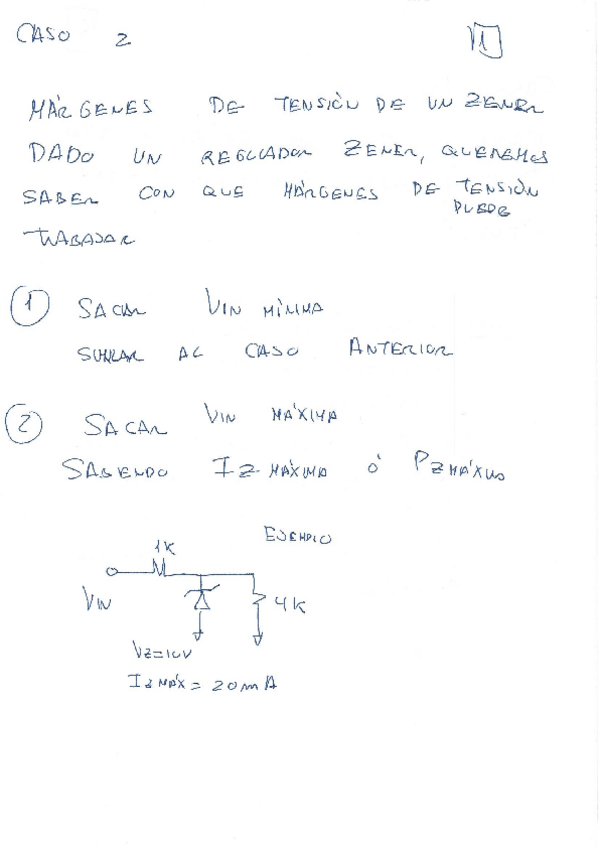 CASO 2
1
MÁRGENES DE TENSIÓN DE UN ZENER
DADO UN REGULADOR ZENER, QUEREMOS
SABER CON QUE MÁRGENES DE TENSIÓN
PUEDE
TRABAJAR
1 SACAR VIN MÍNIMA
SIMILAR AL CASO ANTERIOR
2 SACAR VIN MÁXIMA
SABIENDO IZ MÁXIMA Ó PZ MÁXIMO
EJEMPLO
1K
VIN
4K
VZ=10V
IZ MÁX = 20mA